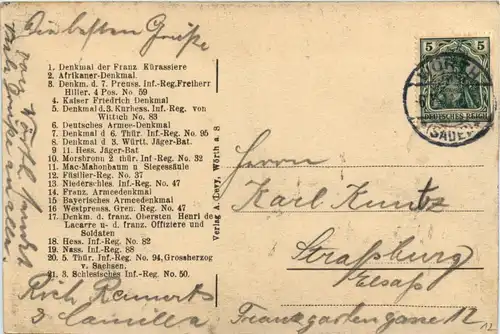 Die besten Grüße
1. Denkmal der Franz Kürassiere
2. Afrikaner-Denkmal.
3. Denkm. d. 7. Preuss. Inf.-Reg.Freiherr
Hiller. 4 Pos. No. 59
4. Kaiser Friedrich Denkmal
5. Denkmal d.3. Kurhess. Inf.-Reg. von
Wittich No. 83
6. Deutsches Armee-Denkmal
7. Denkmal d 6. Thür. Inf.-Reg. No. 95
8. Denkmal d 3. Württ. Jäger-Bat.
9 11. Hess. Jäger-Bat
10. Morsbronn 2 thür. Inf-Reg. No. 32
11. Mac-Mahonbaum u Siegessäule
12. Füsilier-Reg. No. 37
13. Niederschles. Inf.-Reg. No. 47
14. Franz. Armeedenkmal
15 Bayerisches Armeedenkmal
16. Westpreuss. Gren. Reg. No. 47
17. Denkm. d franz. Obersten Henri de
Lacarre u- d. franz. Offiziere und
Soldaten
18. Hess. Inf.-Reg. No. 82
19. Nass. Inf.-Reg. No. 88
20. 5. Thür. Inf.-Reg. No. 94,Grossherzog
v. Sachsen.
21. 3. Schlesisches Inf.-Reg. No. 50.
Verlag A. Levy, Wörth a. S
5 5
DEUTSCHES REICH
WÖRTH
(SAUER)
Herrn
Karl Kuntz
Straßburg
Elsaß
Franzgartengasse 12
12